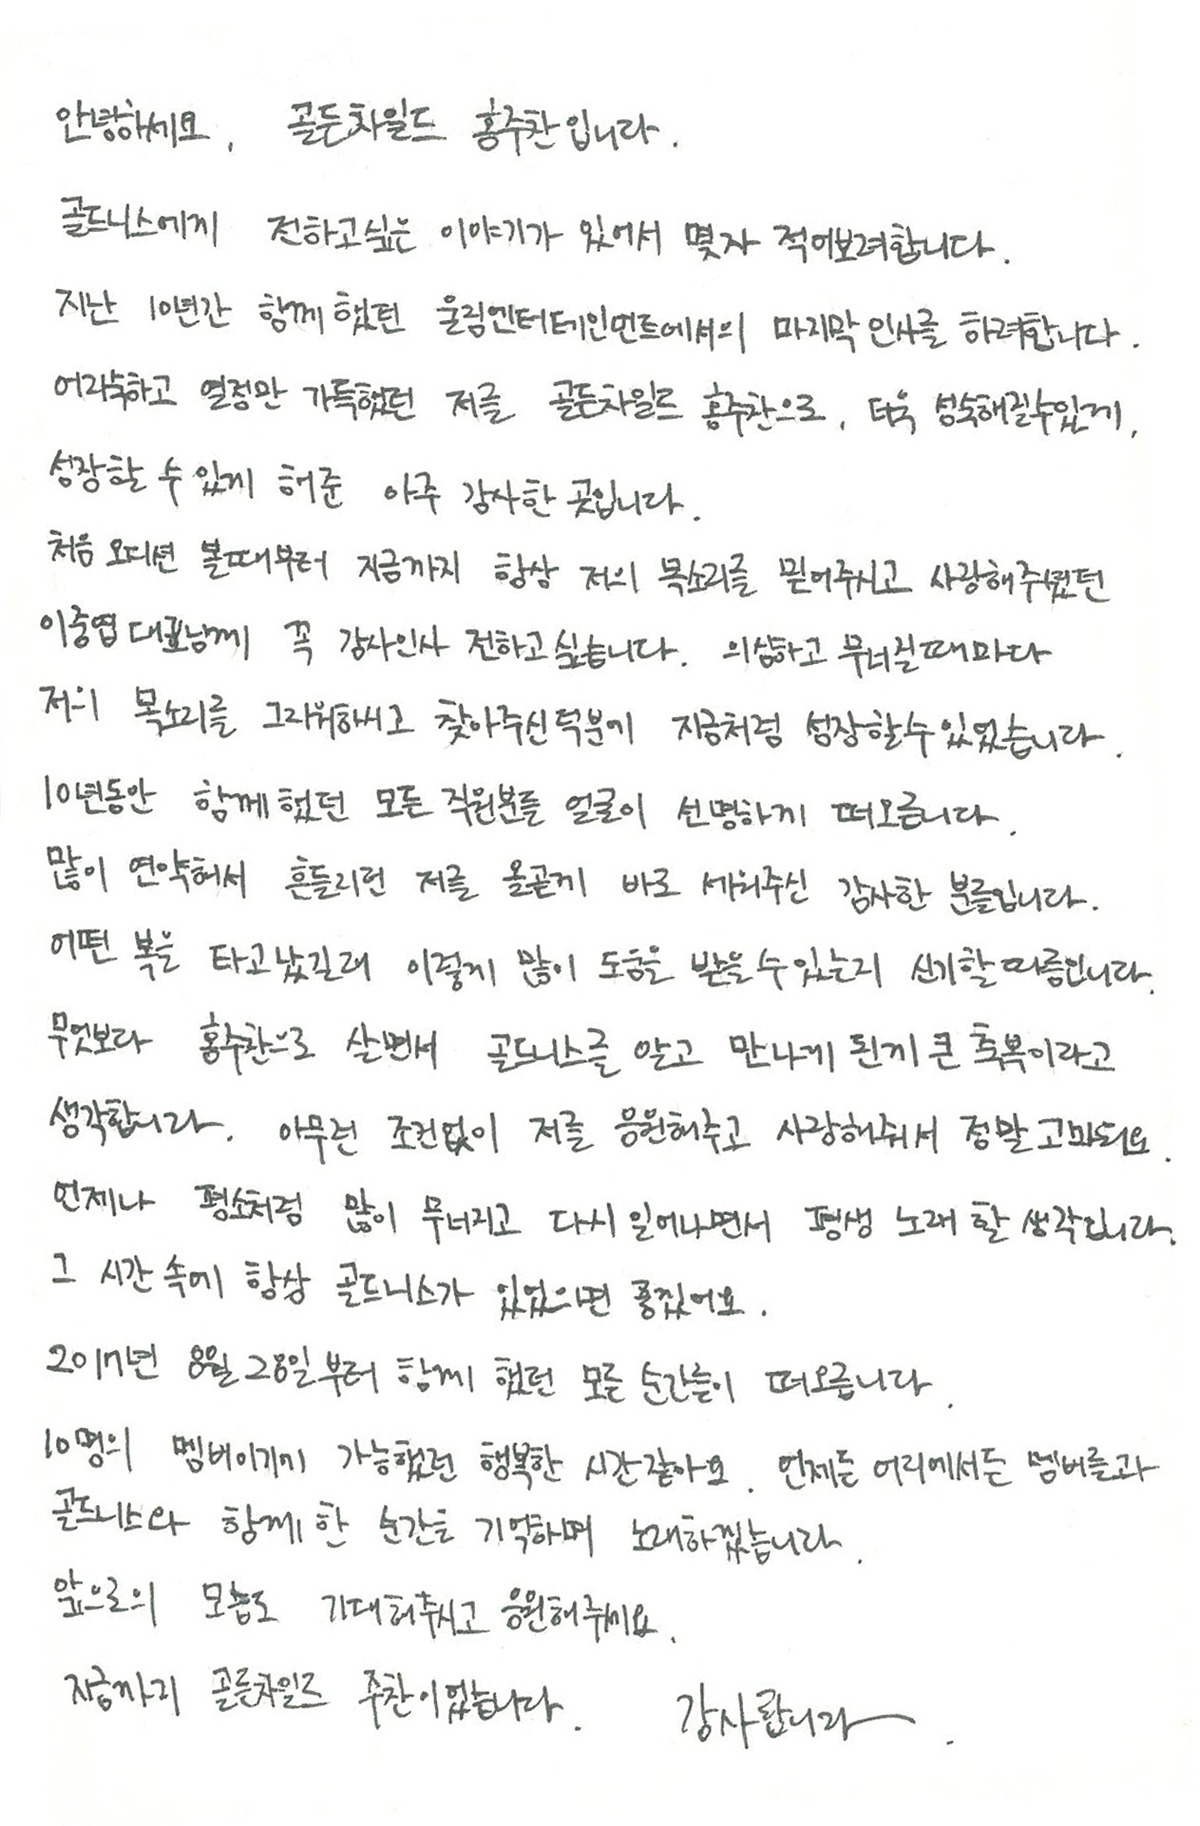 안녕하세요, 골든차일드 홍주찬입니다.
골드니스에게 전하고싶은 이야기가 있어서 몇자 적어보려합니다.
지난 10년간 함께했던 울림엔터테인먼트에서의 마지막 인사를 하려합니다.
어리숙하고 열정만 가득했던 저를 골든차일드 홍주찬으로, 더욱 성숙해질수있게,
성장할 수 있게 해준 아주 감사한 곳입니다.
처음 오디션 볼때부터 지금까지 항상 저의 목소리를 믿어주시고 사랑해주셨던
이중엽 대표님께 꼭 감사인사 전하고 싶습니다. 의심하고 무너질때마다
저의 목소리를 그리워하시고 찾아주신 덕분에 지금처럼 성장할수있었습니다.
10년동안 함께했던 모든 직원분들 얼굴이 선명하게 떠오릅니다.
많이 연약해서 흔들리던 저를 올곧게 바로 세워주신 감사한 분들입니다.
어떤 복을 타고났길래 이렇게 많이 도움을 받을 수 있는지 신기할 따름입니다.
무엇보다 홍주찬으로 살면서 골드니스를 알고 만나게 된게 큰 축복이라고
생각합니다. 아무런 조건없이 저를 응원해주고 사랑해줘서 정말 고마워요.
언제나 평소처럼 많이 무너지고 다시 일어나면서 평생 노래 할 생각입니다.
그 시간 속에 항상 골드니스가 있었으면 좋겠어요.
2017년 8월 28일부터 함께 했던 모든 순간들이 떠오릅니다.
10명의 멤버이기에 가능했던 행복한 시간같아요. 언제든 어디에서든 멤버들과
골드니스와 함께 한 순간을 기억하며 노래하겠습니다.
앞으로의 모습도 기대해주시고 응원해주세요.
지금까지 골든차일드 주찬이었습니다. 감사합니다.